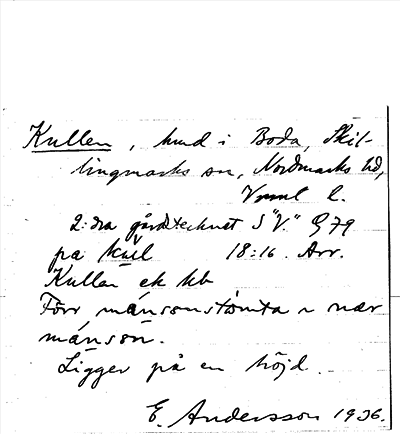 Kullen, hmd i Boda, Skil-
lingmarks sn, Nordmarks hd,
Vrml l.
2:dra gårdstecknet S "V." G 79
på kúl 18:16. Arr.
Kullen ek kb
Förr månsonstomta n nær
månsón.
Ligger på en höjd.
E. Andersson 1936.